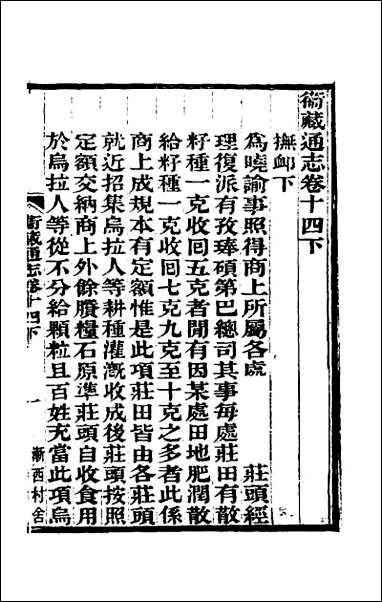 衛藏通志卷十四下
撫卹下
為曉諭事照得商上所屬各處 莊頭經
理復派有孜琫碩第巴總司其事每處莊田有散
籽種一克收回五克者聞有因某處田地肥潤散
給籽種一克收回七克九克至十克之多者此係
商上成規本有定額惟是此項莊田皆由各莊頭
就近招集烏拉人等耕種灌漑收成後莊頭按照
定額交納商上外餘賸糧石原準莊頭自收食用
於烏拉人等從不分給顆粒且百姓充當此項烏
衛藏通志卷十四下
一
漸西村舍